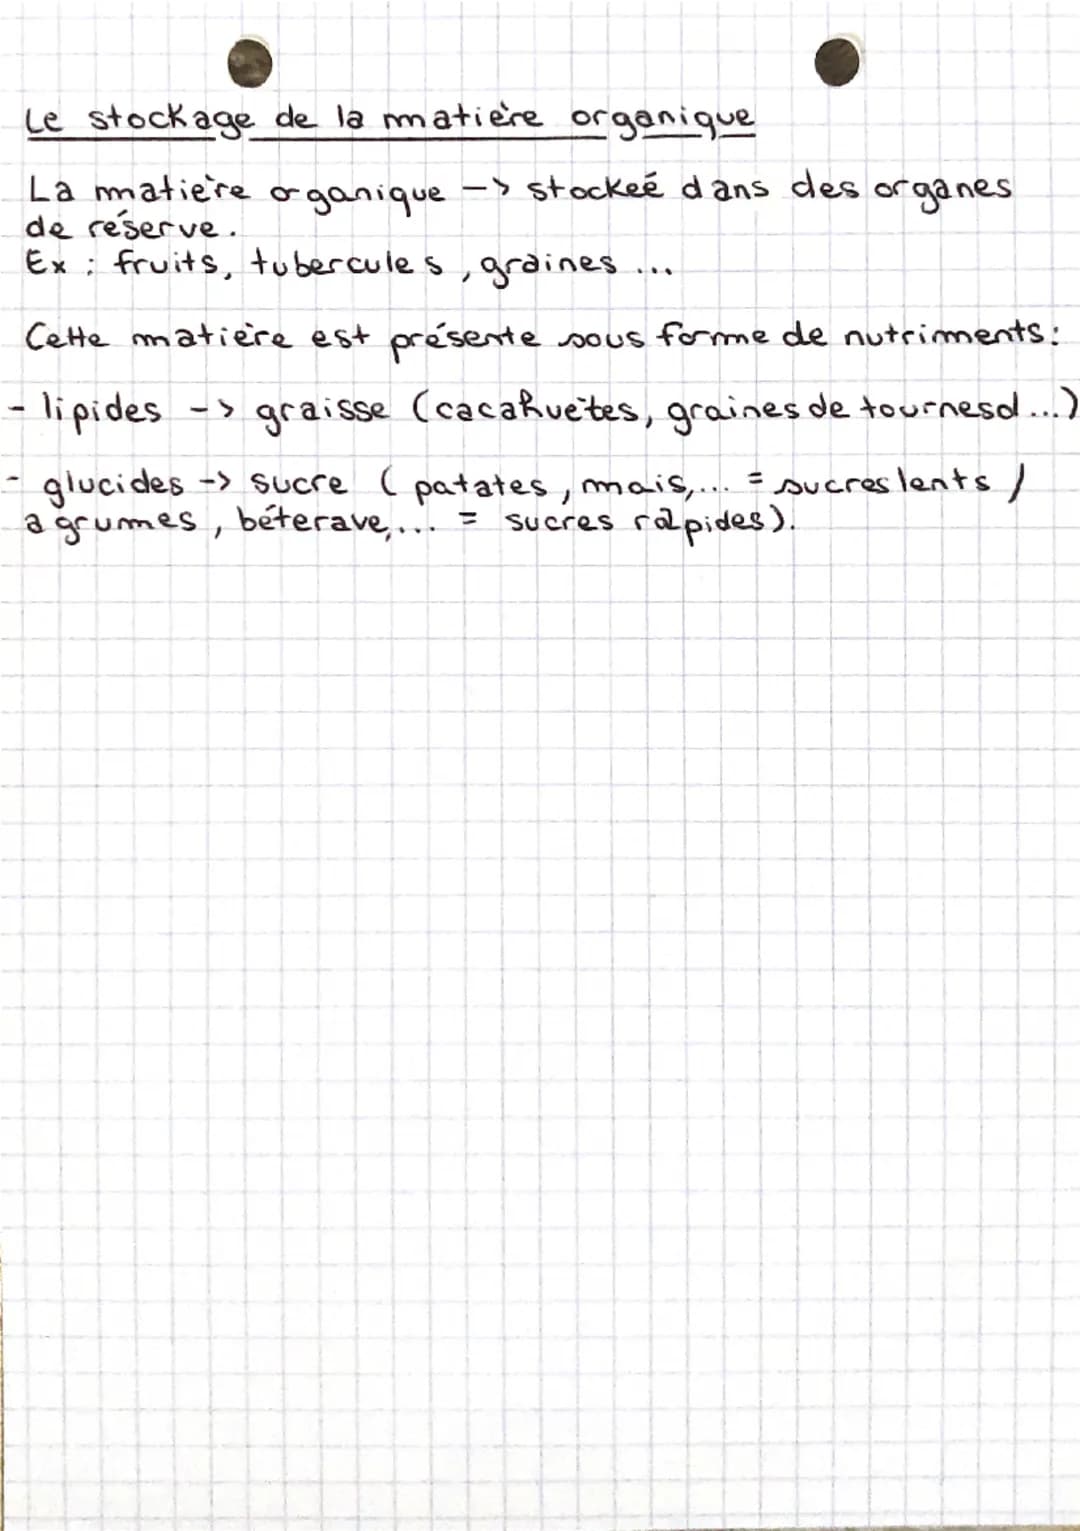 Le stockage de la matière organique
La matière organique -> stockeé dans des organes
de réserve.
Ex : fruits, tubercules, graines ...
Cette matière est présente sous forme de nutriments :
- lipides -> graisse (cacahuètes, graines de tournesol ...)
- glucides -> sucre ( patates, mais,... = sucres lents /
agrumes, béterave,... = sucres rapides).